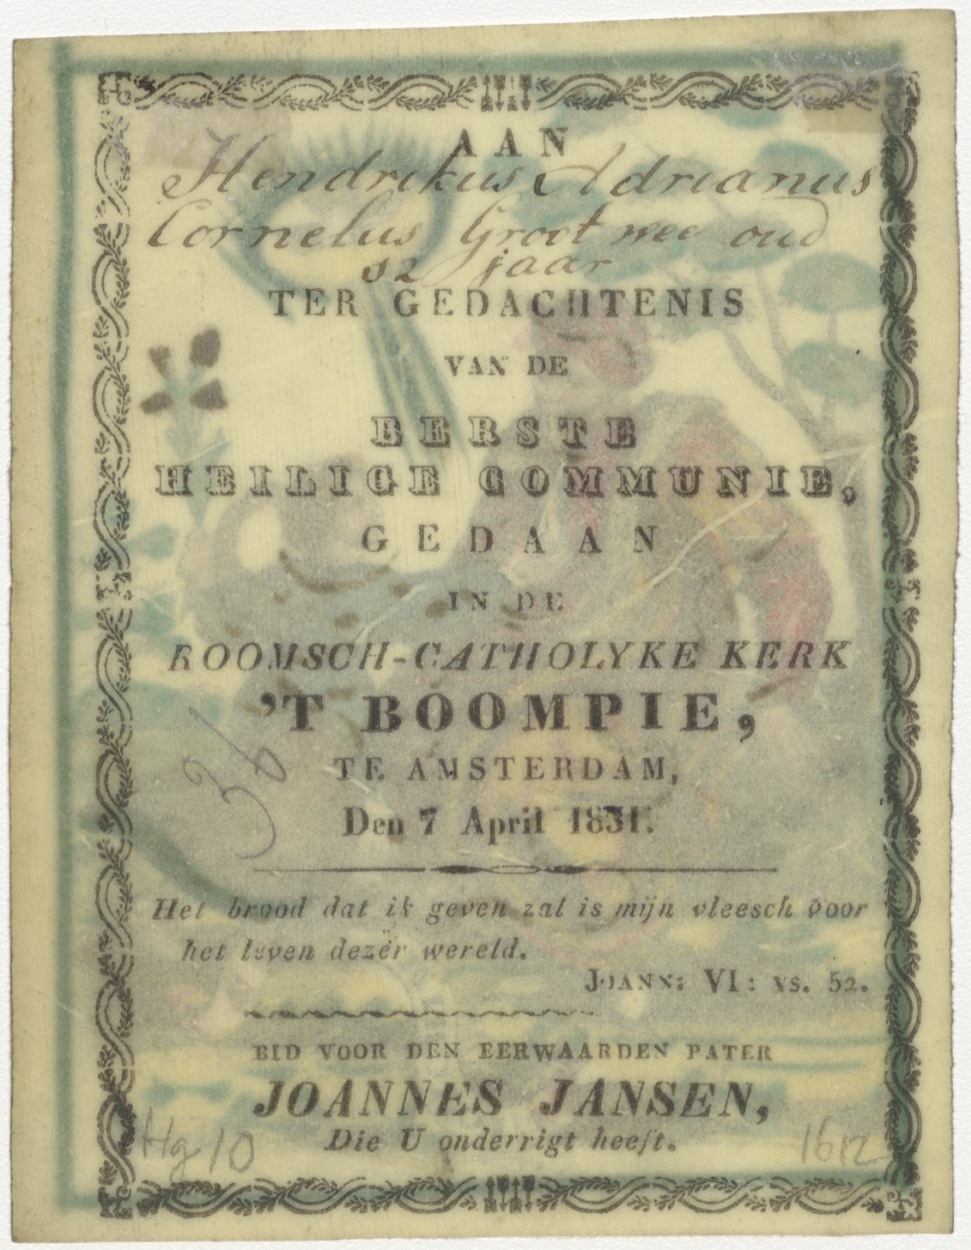 AAN
Hendrikus Adrianus
Cornelus Groot wee oud
12 jaar
TER GEDACHTENIS
VAN DE
EERSTE
HEILIGE COMMUNIE,
GEDAAN
IN DE
ROOMSCH-CATHOLYKE KERK
'T BOOMPIE,
TE AMSTERDAM,
Den 7 April 1831.
36
Het brood dat ik geven zal is mijn vleesch voor
het leven dezer wereld.
JOANN: VI: vs. 52.
BID VOOR DEN EERWAARDEN PATER
JOANNES JANSEN,
Die U onderrigt heeft.
Hg 10
1612